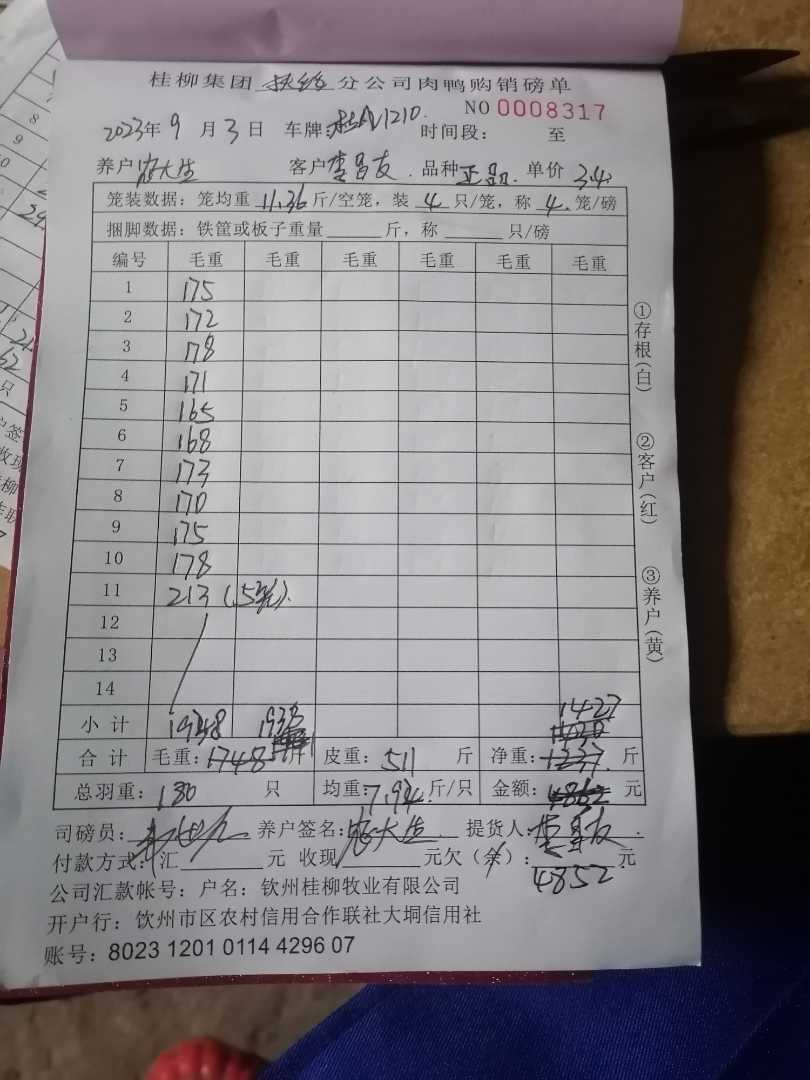 桂柳集团 扶绥 分公司肉鸭购销磅单
NO 0008317
2023年 9 月 3 日 车牌: 1210. 时间段: 至
养户 大生 客户 李昌友. 品种 正品. 单价 3.4
笼装数据:笼均重 11.36 斤/空笼,装 4 只/笼,称 4. 笼/磅
捆脚数据:铁筐或板子重量 斤,称 只/磅
编号 毛重 毛重 毛重 毛重 毛重 毛重
1 175
2 172
3 178
4 171
5 165
6 168
7 173
8 170
9 175
10 178
11 213 (5笼).
12
13
14
小计 1948 1938 1427
合计 毛重:1748 皮重:511 斤 净重:1237. 斤
总羽重:180 只 均重:7.94 斤/只 金额:4862 元
司磅员: 养户签名: 大生. 提货人:李昌友.
付款方式:汇 元 收现 元欠(余):4852. 元
公司汇款帐号:户名:钦州桂柳牧业有限公司
开户行:钦州市区农村信用合作联社大垌信用社
账号:8023 1201 0114 4296 07
①存根(白)
②客户(红)
③养户(黄)